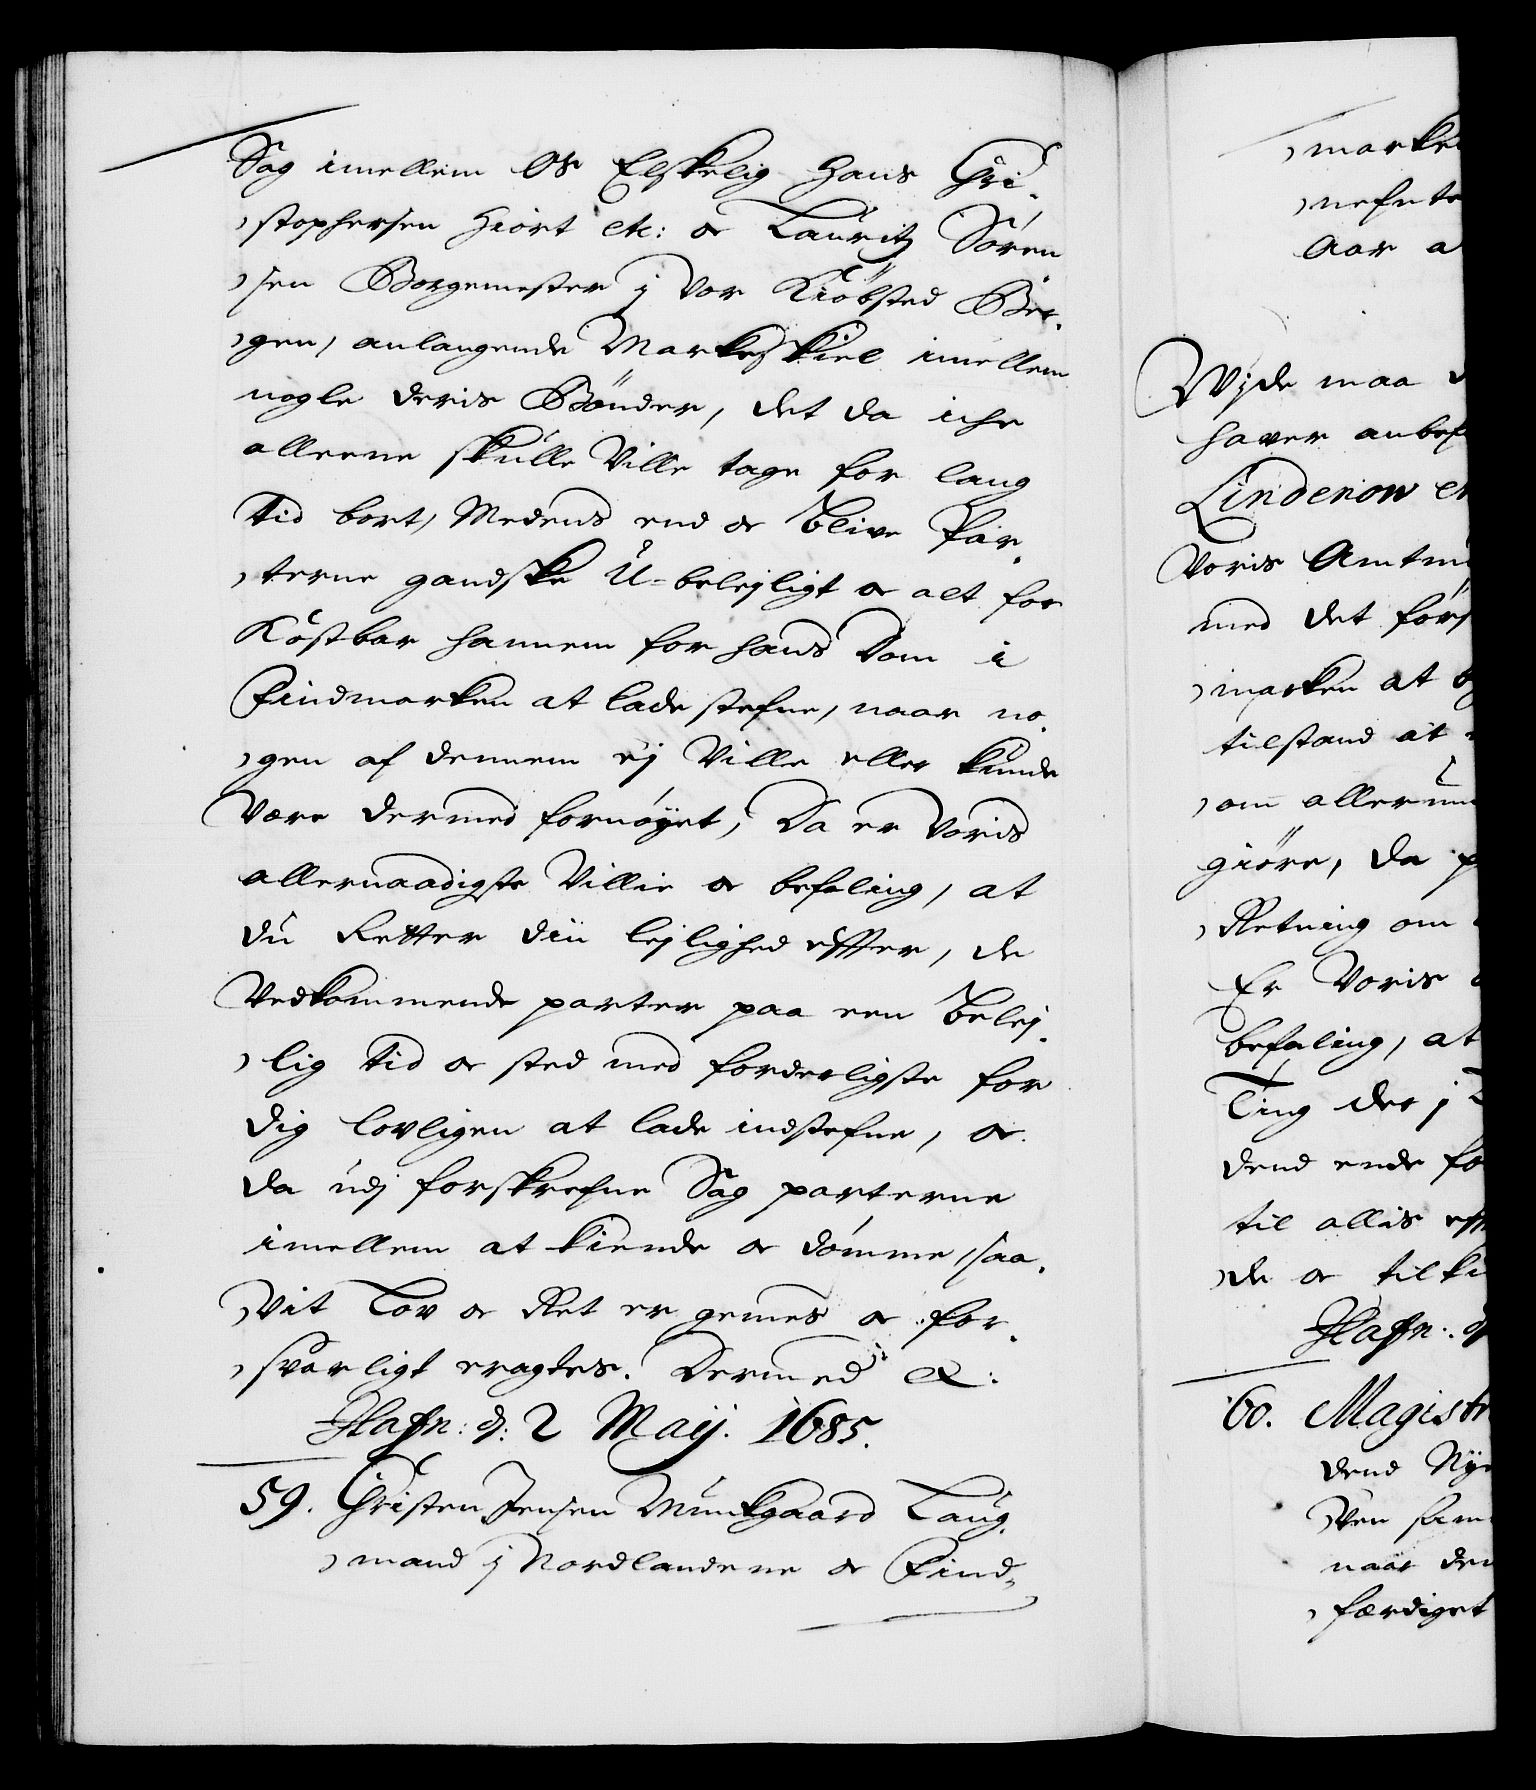 Sag imellem Os Elskelig Hans Chri-
stophersen Hiort etc: oc Lauritz Sören
sen Borgemester j vor Kiöbsted Ber-
gen, anlangende Markeskiel imellem
nogle deris Bönder, det da iche
alleene skulle Ville tage for lang
Tid bort, Medens end oc blive Par-
terne gandske U-belejligt oc alt for
Kostbar hannem for hans Dom i
Findmarken at lade stefne, naar no-
gen af dennem ej Ville eller kunde
Være dermed fornöyet, Da er Voris
allernaadigste Villie oc befaling, at
du Retter din lejlighed effter, de
Vedkommende parter paa een belej-
lig tid oc sted med forderligste for
dig lovligen at lade indstefne, oc
da udj forskrefne Sag parterne
imellem at kiende oc dömme, saa-
vit Lov oc Ret er gemes oc for-
svarligt eragtes. Dermed etc:
Hafn: d: 2 Maij. 1685.
59. Christen Jensen Munkgaard Laug-
mand j Nordlandene oc Find-
marke
nefnte
Aar a
Wide maa
haver anbef
Lindenow et
Voris Amtm
med det förs
marken at
tilstand at
om allerun
giöre, da p
Retning om
Er Voris
befaling, at
Ting der j
dend ende fo
til allis eff
de oc tilki
Hafn: d
60. Magistr
dend Nye
ven sam
naar den
færdiget